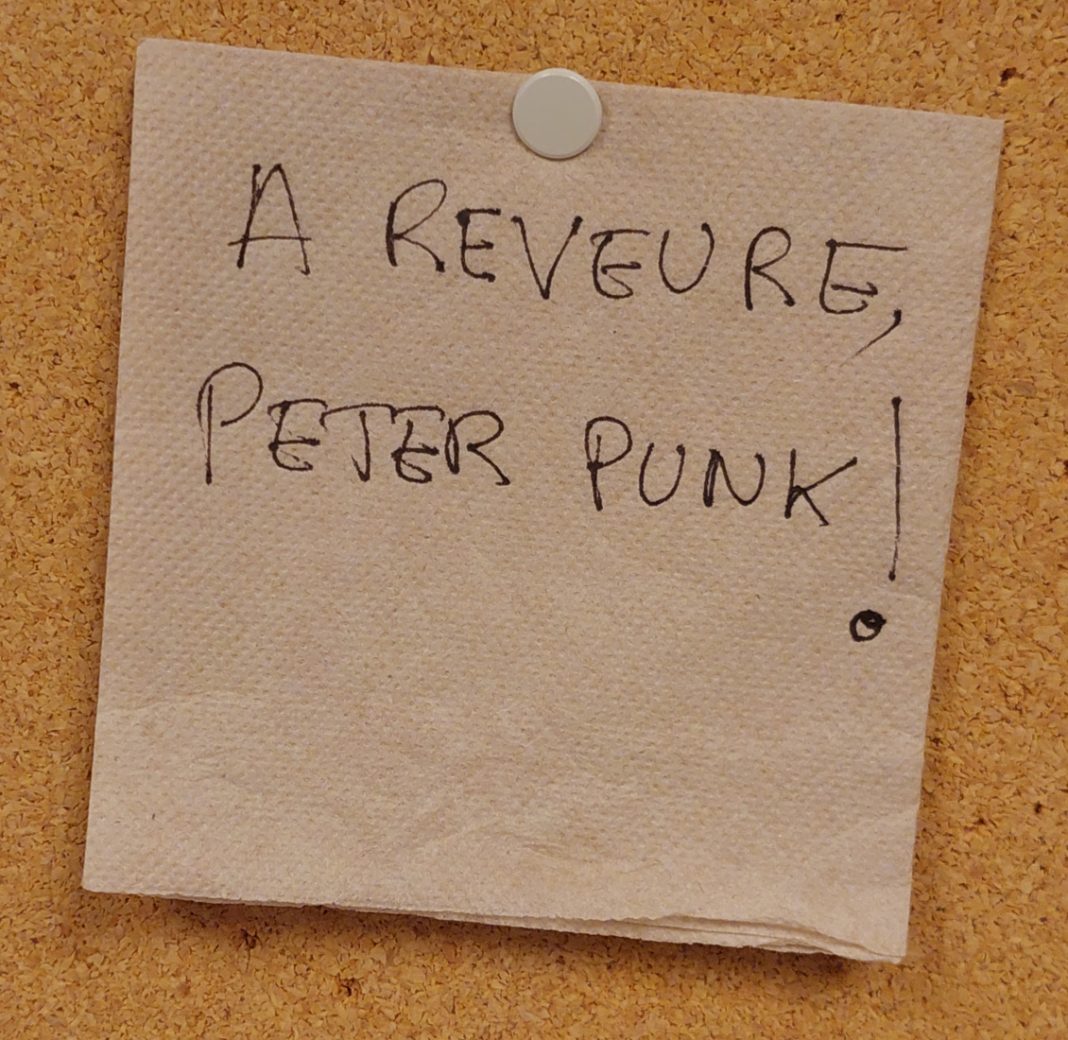 A REVEURE,
PETER PUNK!